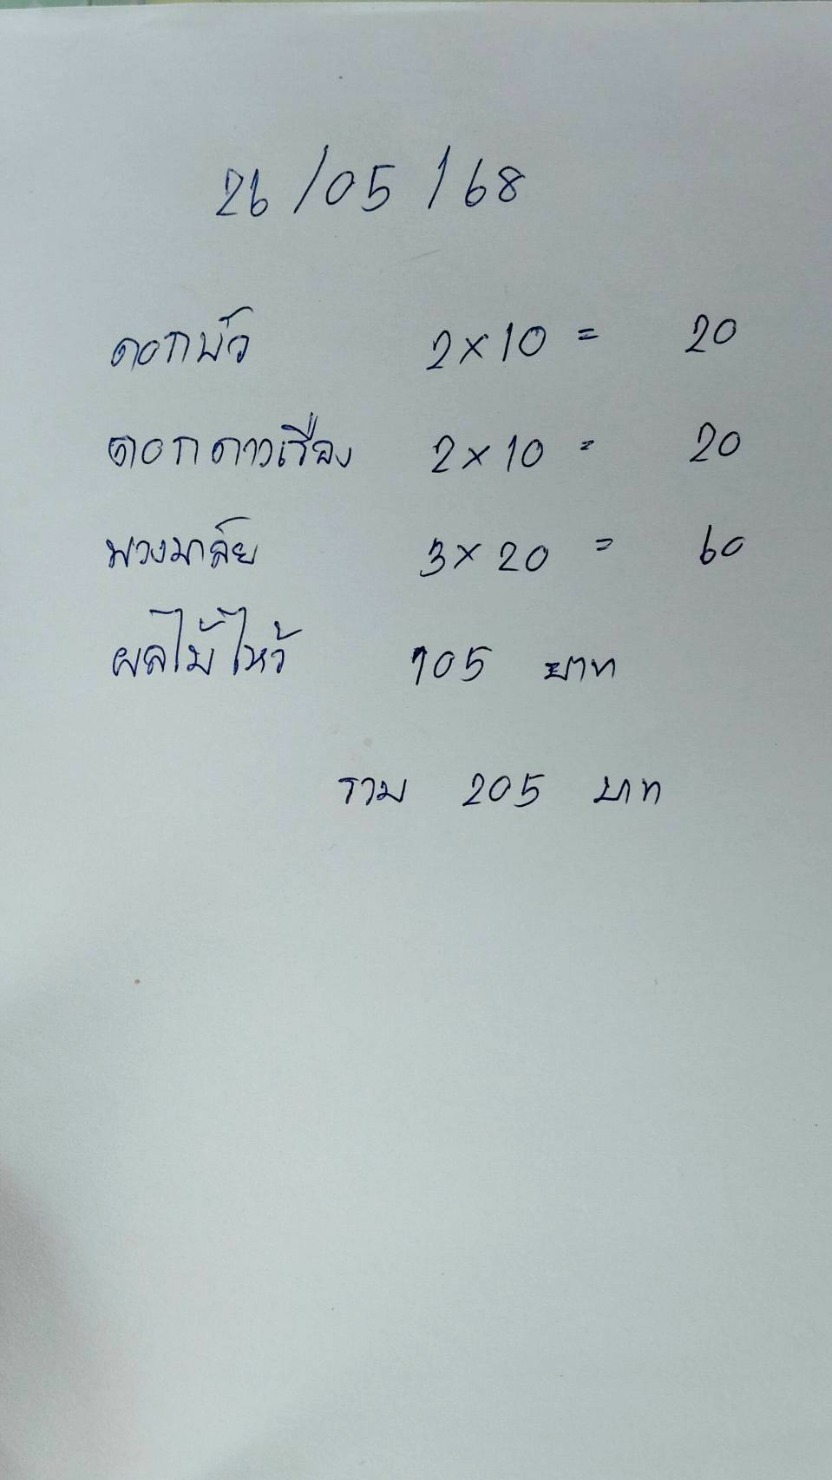 26/05/68
ดอกบัว 2×10 = 20
ดอกดาวเรือง 2×10 = 20
พวงมาลัย 3×20 = 60
ผลไม้ไหว้ 105 บาท
รวม 205 บาท